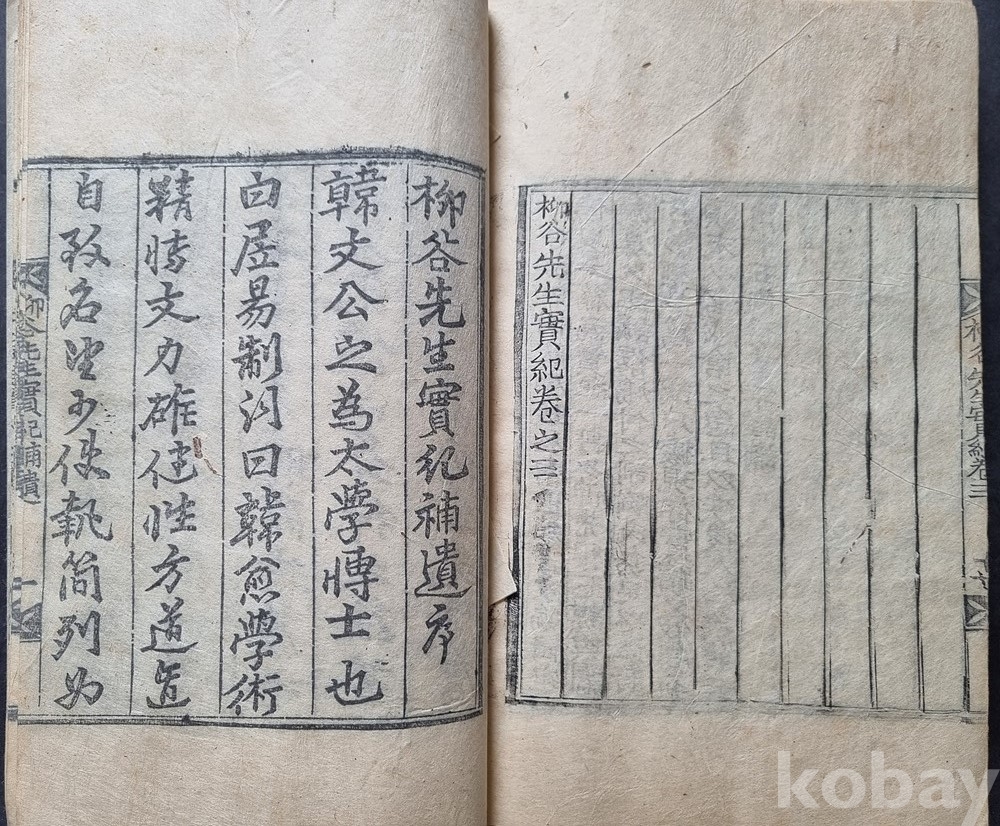 柳谷先生實紀卷三
柳谷先生實紀卷之三
柳谷先生實紀補遺序
韓文公之為太學博士也
白居易制詞曰韓愈學術
精博文力雄健性方道直
自致名望可使執簡列為
柳谷先生實記補遺 一
kobay